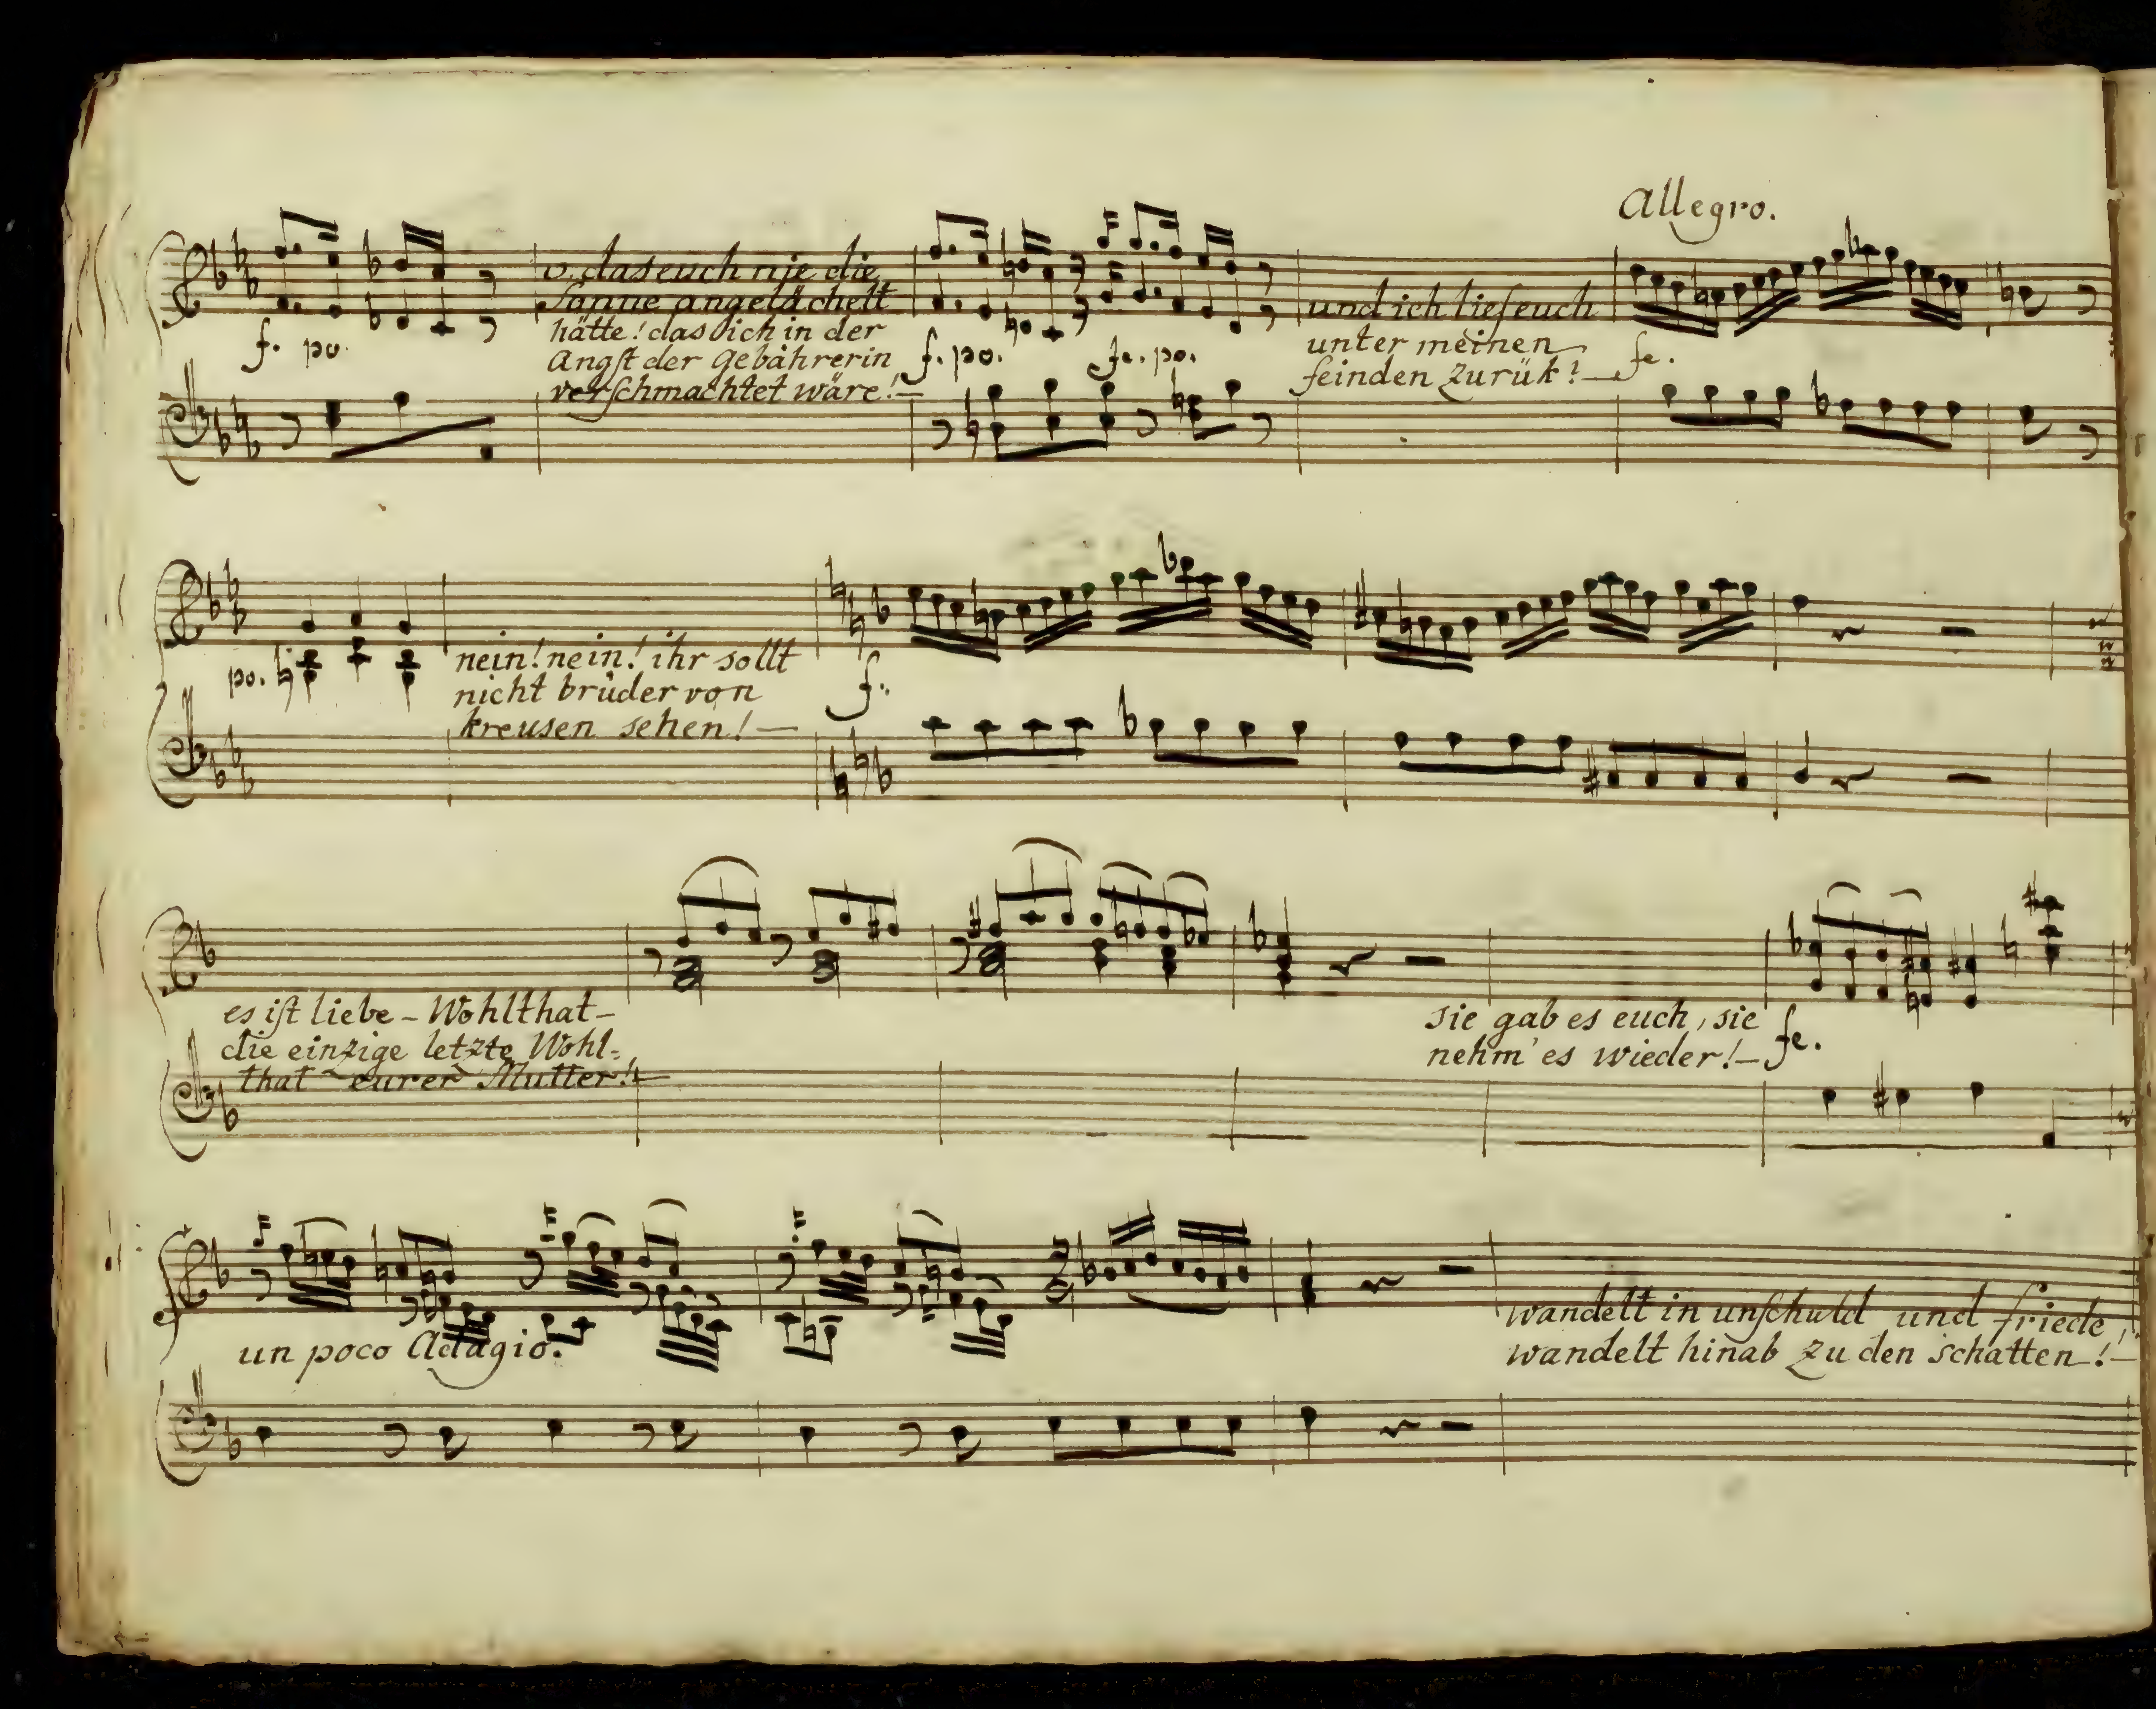 Allegro.
o. das euch nie die
Sonne angelächelt
hätte! das ich in der
Angſt der Gebährerin
verſchmachtet wäre!—
und ich lieſ euch
unter meinen
feinden zurük!—
f. po.
f. po.
fe. po.
fe.
po.
nein! nein! ihr sollt
nicht brüder von
kreusen sehen!—
f.
es iſt liebe – Wohlthat –
die einzige letzte Wohl=
that eurer Mutter!—
sie gab es euch, sie
nehm' es wieder!—
fe.
un poco Adagio.
wandelt in unſchuld und friede,
wandelt hinab zu den schatten!—